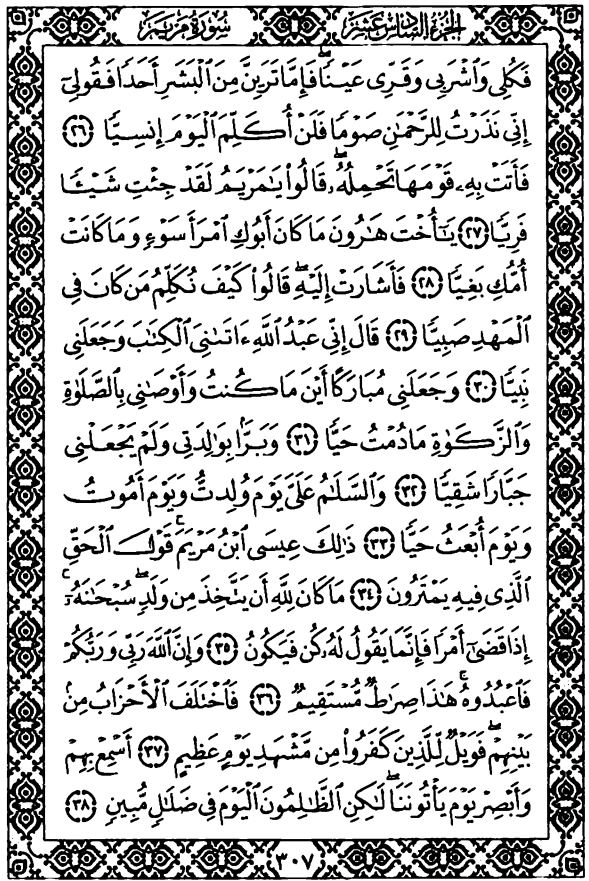 الجزء السادس عشر سورة مريم
فَكُلِي وَاشْرَبِي وَقَرِّي عَيْنًا ۖ فَإِمَّا تَرَيِنَّ مِنَ الْبَشَرِ أَحَدًا فَقُولِي
إِنِّي نَذَرْتُ لِلرَّحْمَٰنِ صَوْمًا فَلَنْ أُكَلِّمَ الْيَوْمَ إِنسِيًّا ﴿٢٦﴾
فَأَتَتْ بِهِ قَوْمَهَا تَحْمِلُهُ ۖ قَالُوا يَا مَرْيَمُ لَقَدْ جِئْتِ شَيْئًا
فَرِيًّا ﴿٢٧﴾ يَا أُخْتَ هَارُونَ مَا كَانَ أَبُوكِ امْرَأَ سَوْءٍ وَمَا كَانَتْ
أُمُّكِ بَغِيًّا ﴿٢٨﴾ فَأَشَارَتْ إِلَيْهِ ۖ قَالُوا كَيْفَ نُكَلِّمُ مَن كَانَ فِي
الْمَهْدِ صَبِيًّا ﴿٢٩﴾ قَالَ إِنِّي عَبْدُ اللَّهِ ءَاتَانِيَ الْكِتَابَ وَجَعَلَنِي
نَبِيًّا ﴿٣٠﴾ وَجَعَلَنِي مُبَارَكًا أَيْنَ مَا كُنتُ وَأَوْصَانِي بِالصَّلَوٰةِ
وَالزَّكَوٰةِ مَا دُمْتُ حَيًّا ﴿٣١﴾ وَبَرًّا بِوَالِدَتِي وَلَمْ يَجْعَلْنِي
جَبَّارًا شَقِيًّا ﴿٣٢﴾ وَالسَّلَامُ عَلَيَّ يَوْمَ وُلِدتُّ وَيَوْمَ أَمُوتُ
وَيَوْمَ أُبْعَثُ حَيًّا ﴿٣٣﴾ ذَٰلِكَ عِيسَى ابْنُ مَرْيَمَ ۚ قَوْلَ الْحَقِّ
الَّذِي فِيهِ يَمْتَرُونَ ﴿٣٤﴾ مَا كَانَ لِلَّهِ أَن يَتَّخِذَ مِن وَلَدٍ ۖ سُبْحَانَهُ ۚ
إِذَا قَضَىٰ أَمْرًا فَإِنَّمَا يَقُولُ لَهُ كُن فَيَكُونُ ﴿٣٥﴾ وَإِنَّ اللَّهَ رَبِّي وَرَبُّكُمْ
فَاعْبُدُوهُ ۚ هَٰذَا صِرَاطٌ مُّسْتَقِيمٌ ﴿٣٦﴾ فَاخْتَلَفَ الْأَحْزَابُ مِن
بَيْنِهِمْ ۖ فَوَيْلٌ لِّلَّذِينَ كَفَرُوا مِن مَّشْهَدِ يَوْمٍ عَظِيمٍ ﴿٣٧﴾ أَسْمِعْ بِهِمْ
وَأَبْصِرْ يَوْمَ يَأْتُونَنَا ۖ لَٰكِنِ الظَّالِمُونَ الْيَوْمَ فِي ضَلَالٍ مُّبِينٍ ﴿٣٨﴾
٣٠٧